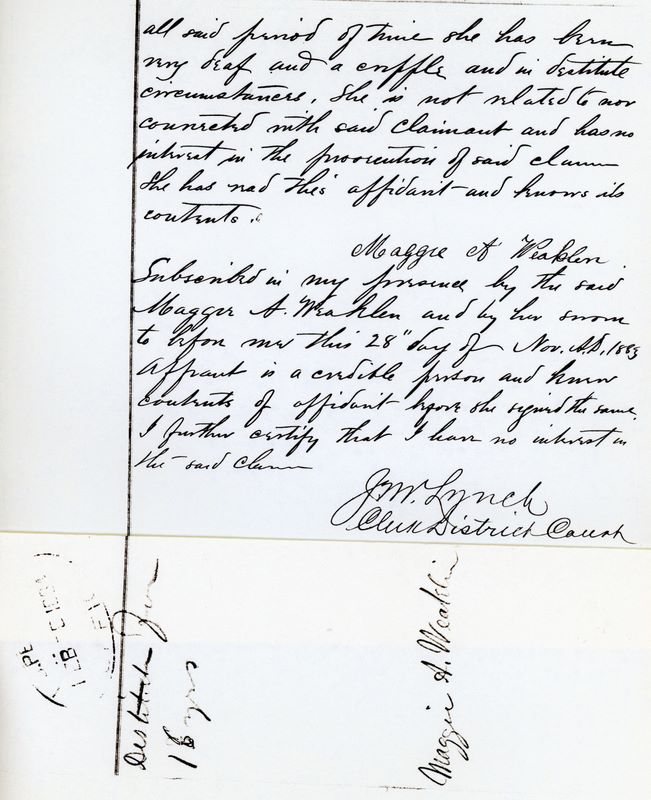 all said period of time she has been
very deaf and a cripple and in destitute
circumstances. She is not related to nor
connected with said claimant and has no
interest in the prosecution of said claim
She has read this affidavit and knows its
contents.
Maggie A Weaklen
Subscribed in my presence by the said
Maggie A. Weaklen and by her sworn
to before me this 28" day of Nov. A.D. 1883
Affiant is a credible person and knew
contents of affidavit before she signed the same.
I further certify that I have no interest in
the said claim
J.W. Lynch
Clerk District Court
Destitute
18 yrs
Maggie A. Weaklin